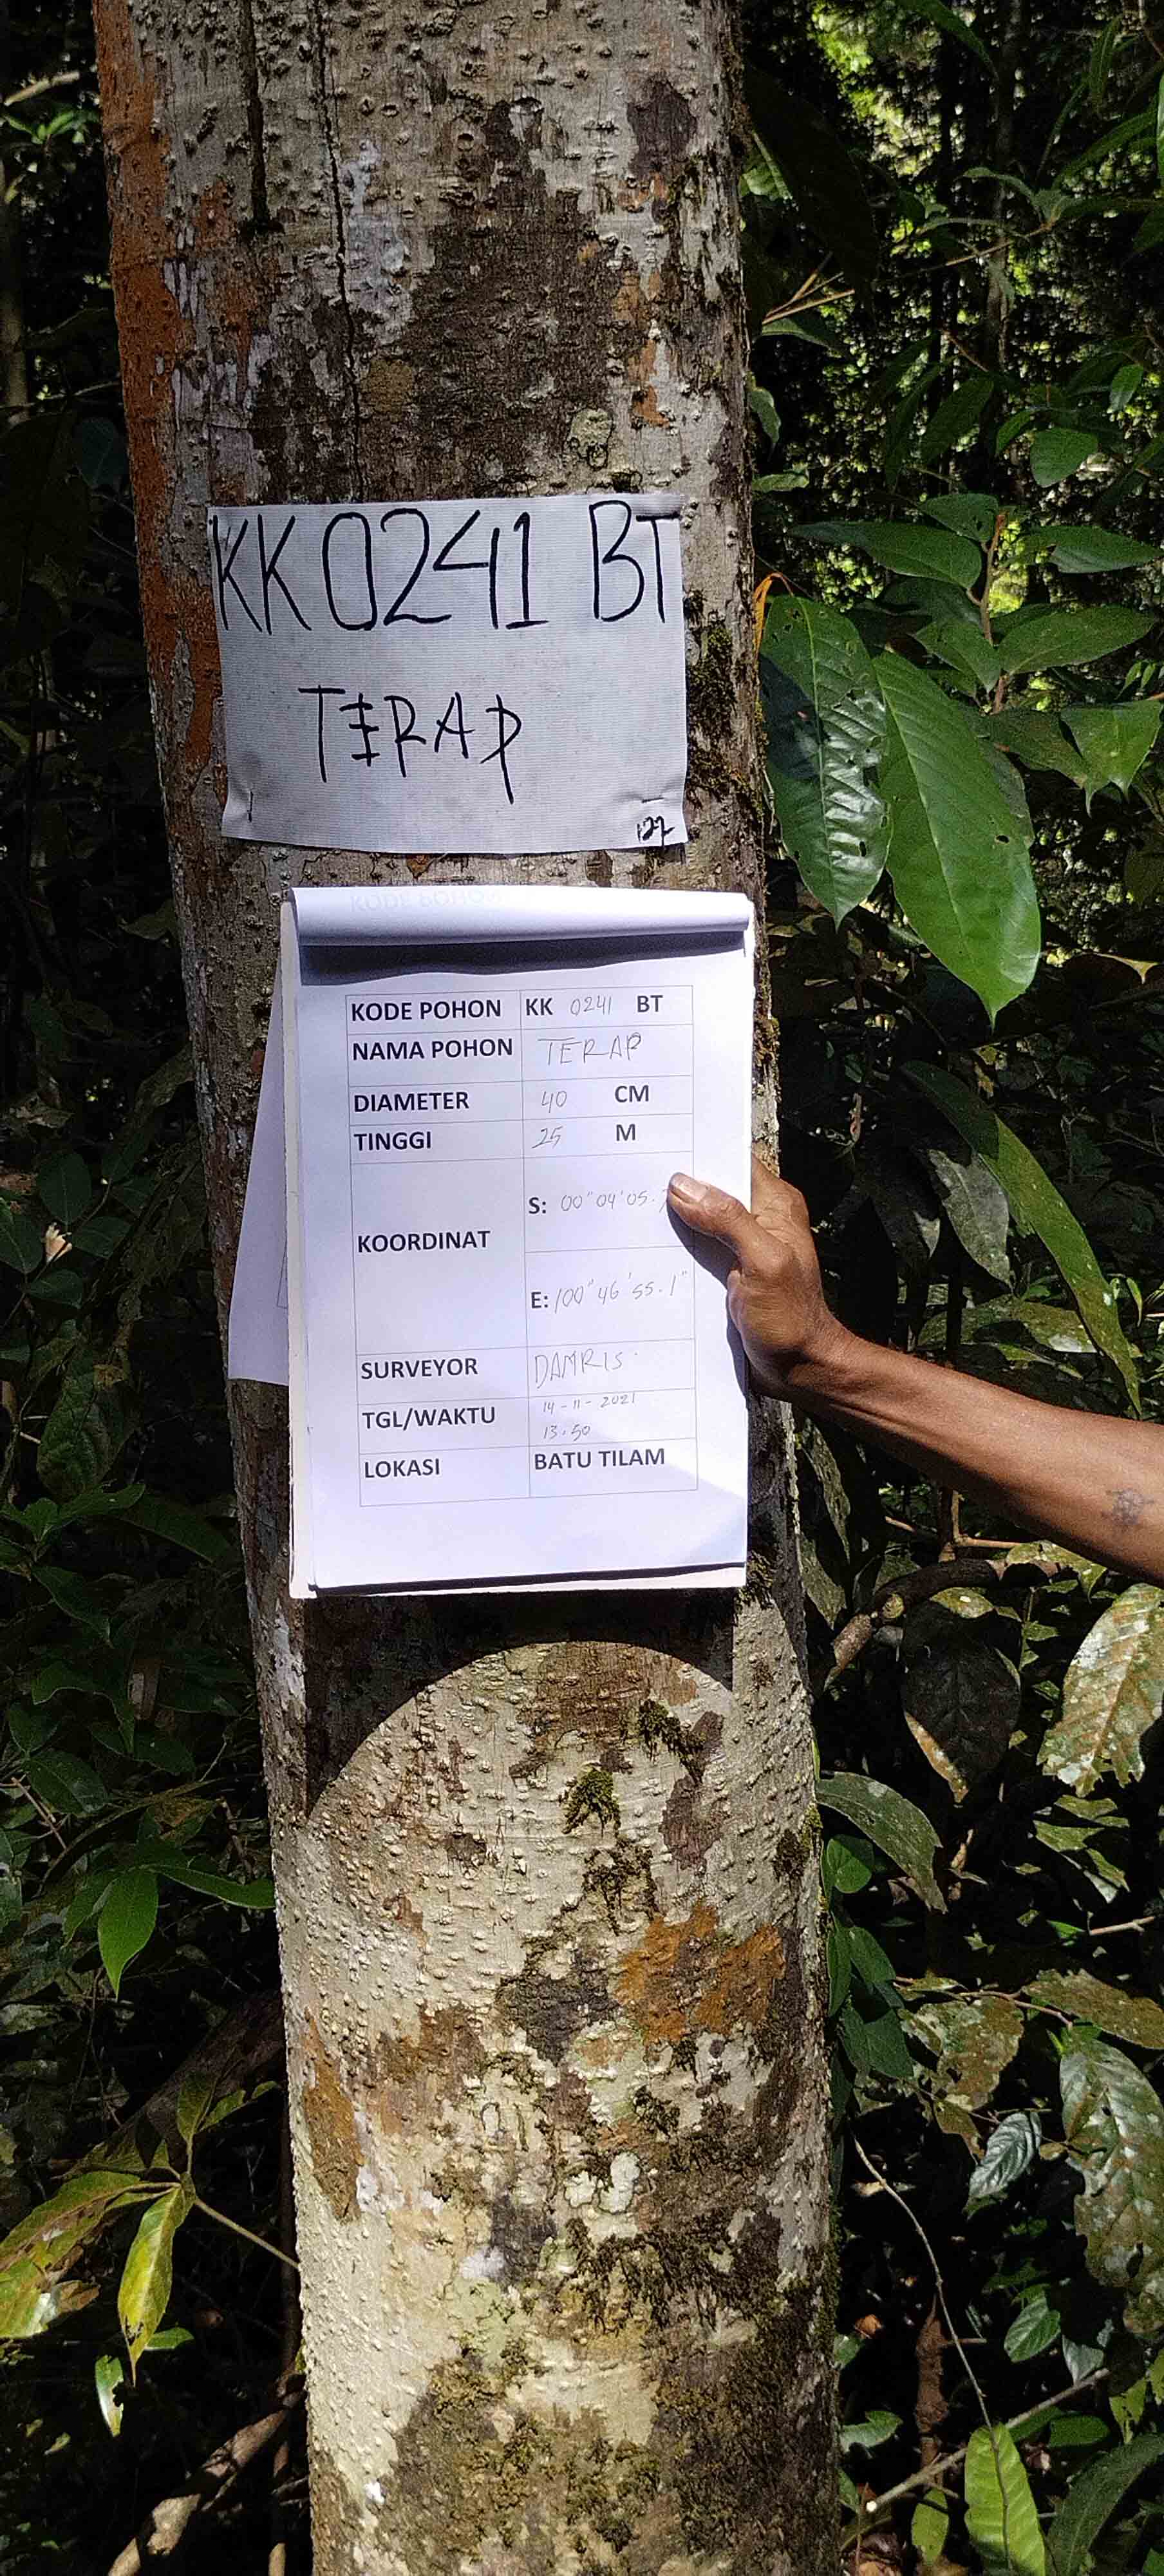 KK 0241 BT
TERAP
122
KODE POHON KK 0241 BT
NAMA POHON TERAP
DIAMETER 40 CM
TINGGI 25 M
KOORDINAT
S: 00" 04' 05.
E: 100" 46' 55.1"
SURVEYOR DAMRIS
TGL/WAKTU 14-11-2021
13.50
LOKASI BATU TILAM